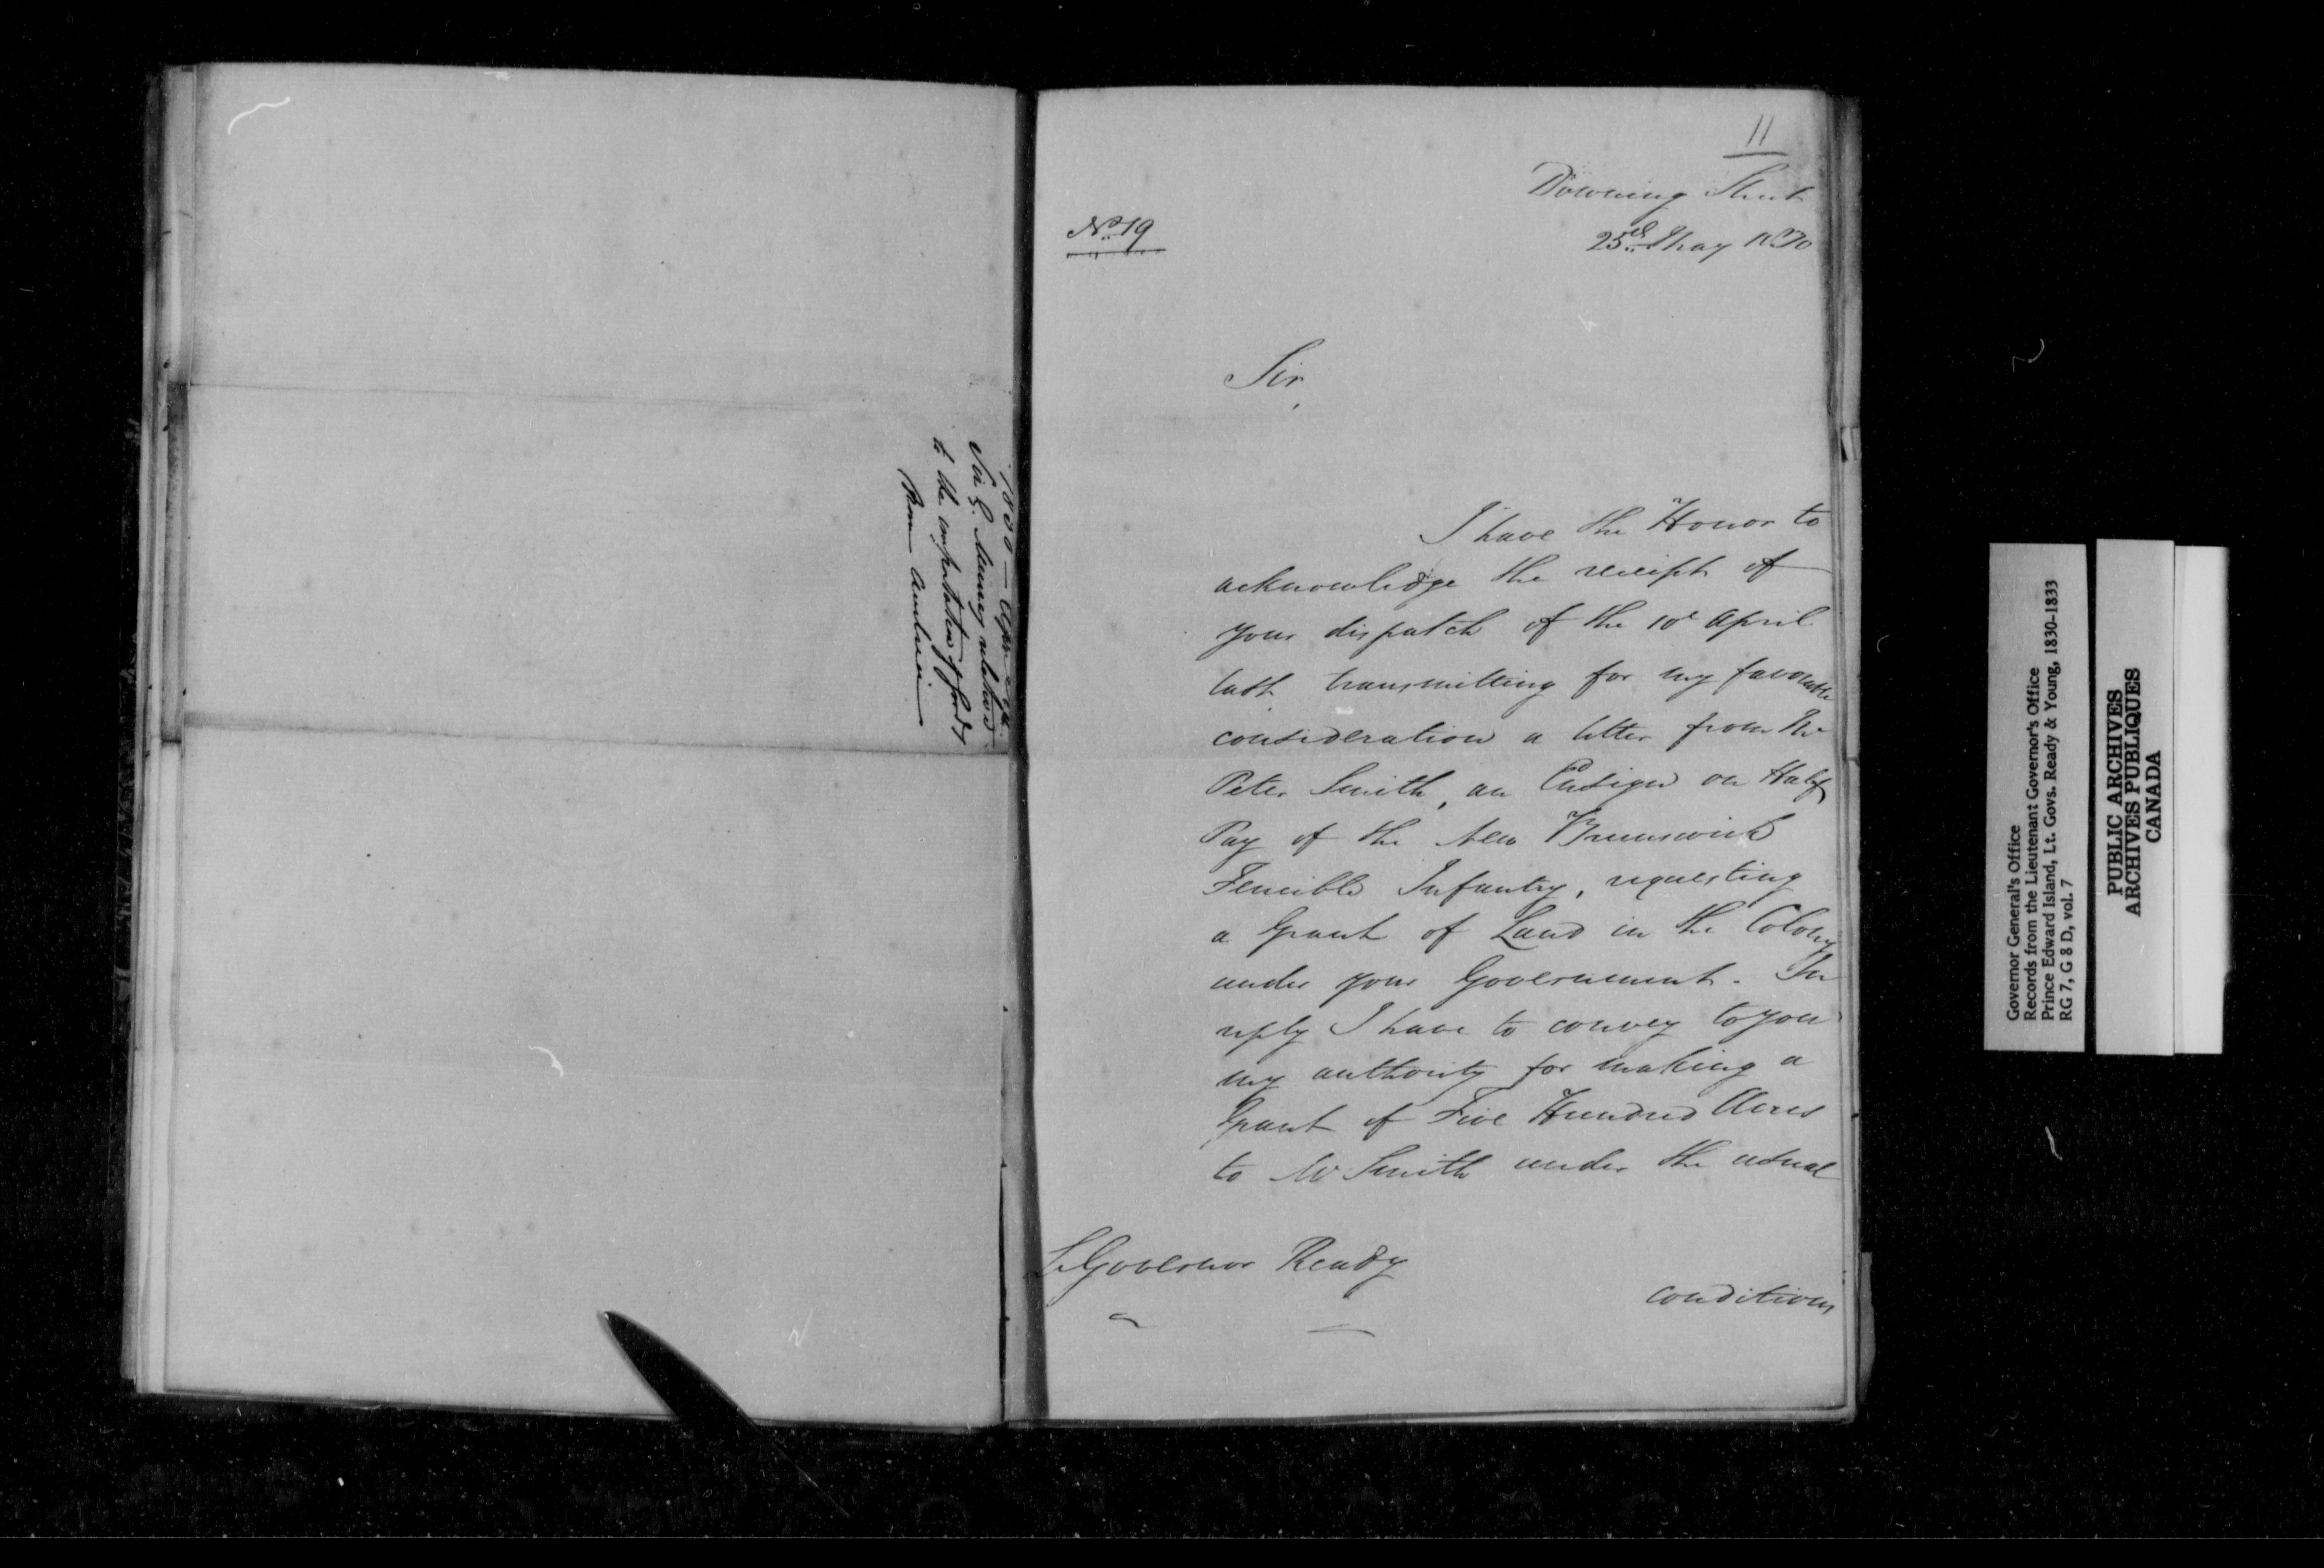 1830 — Apr
Sir G. Murray relative
to the importation of goods
from America
11
Downing Street
25th May 1830
No. 19
Sir,
I have the Honor to
acknowledge the receipt of
your dispatch of the 10th April
last transmitting for my favorable
consideration a letter from Mr
Peter Smith, an Ensign on Half
Pay of the New Brunswick
Fencible Infantry, requesting
a Grant of Land in the Colony
under your Government. In
reply I have to convey to you
my authority for making a
Grant of Five Hundred Acres
to Mr Smith under the usual
Lt Governor Ready
conditions
Governor General's Office
Records from the Lieutenant Governor's Office
Prince Edward Island, Lt. Govs. Ready & Young, 1830-1833
RG 7, G 8 D, vol. 7
PUBLIC ARCHIVES
ARCHIVES PUBLIQUES
CANADA